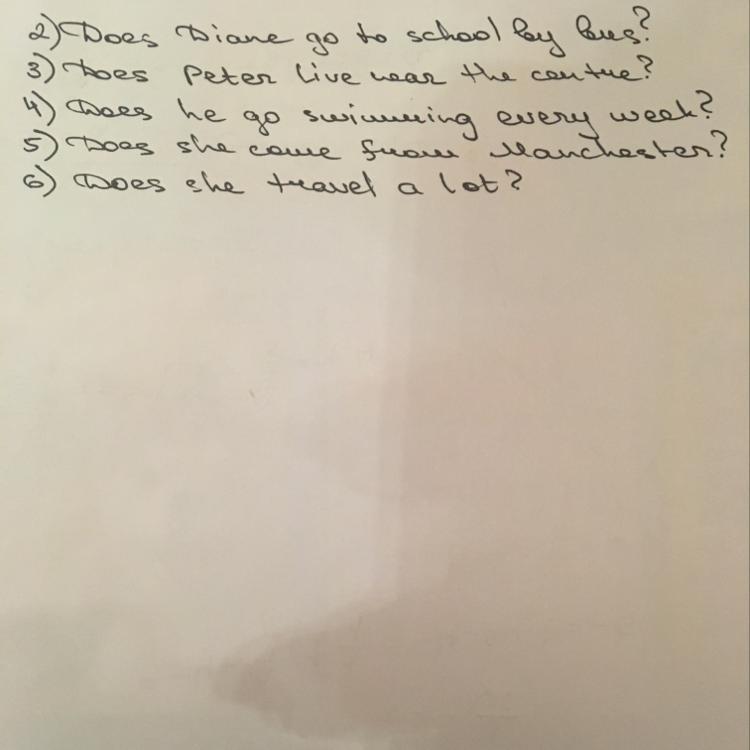 2) Does Diane go to school by bus?
3) Does Peter live near the centre?
4) Does he go swimming every week?
5) Does she come from Manchester?
6) Does she travel a lot?